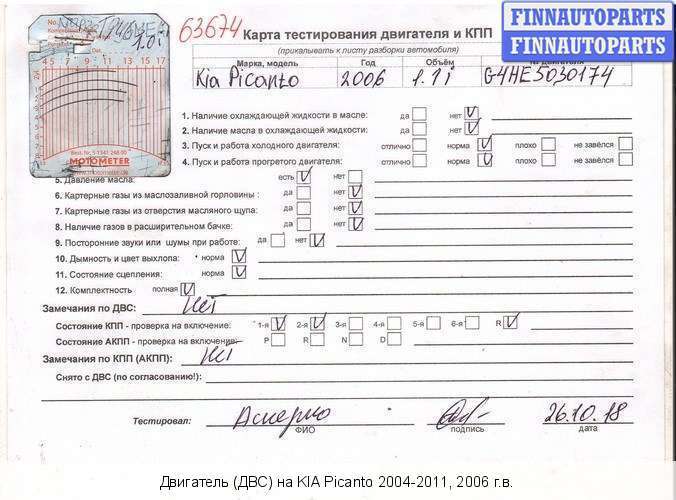 FINNAUTOPARTS
FINNAUTOPARTS
63674
Карта тестирования двигателя и КПП
(прикалывать к листу разборки автомобиля)
Марка, модель Год Объём двигателя
Kia Picanto 2006 1.1i G4HE5030174
1.0i
45 7 9 11 13 15 17
Best. Nr. 5-1341 248 00
MOTOMETER
www.motometer.de
1. Наличие охлаждающей жидкости в масле: да нет V
2. Наличие масла в охлаждающей жидкости: да нет V
3. Пуск и работа холодного двигателя: отлично норма V плохо не завёлся
4. Пуск и работа прогретого двигателя: отлично норма V плохо не завёлся
5. Давление масла: есть V нет
6. Картерные газы из маслозаливной горловины : да нет V
7. Картерные газы из отверстия масляного щупа: да нет V
8. Наличие газов в расширительном бачке: да нет V
9. Посторонние звуки или шумы при работе: да нет V
10. Дымность и цвет выхлопа: норма V
11. Состояние сцепления: норма V
12. Комплектность полная V
Замечания по ДВС: Нет
Состояние КПП - проверка на включение: 1-я V 2-я V 3-я 4-я 5-я 6-я R V
Состояние АКПП - проверка на включение: P R N D
Замечания по КПП (АКПП): Нет
Снято с ДВС (по согласованию!):
Тестировал: 26.10.18
ФИО подпись дата
Двигатель (ДВС) на KIA Picanto 2004-2011, 2006 г.в.